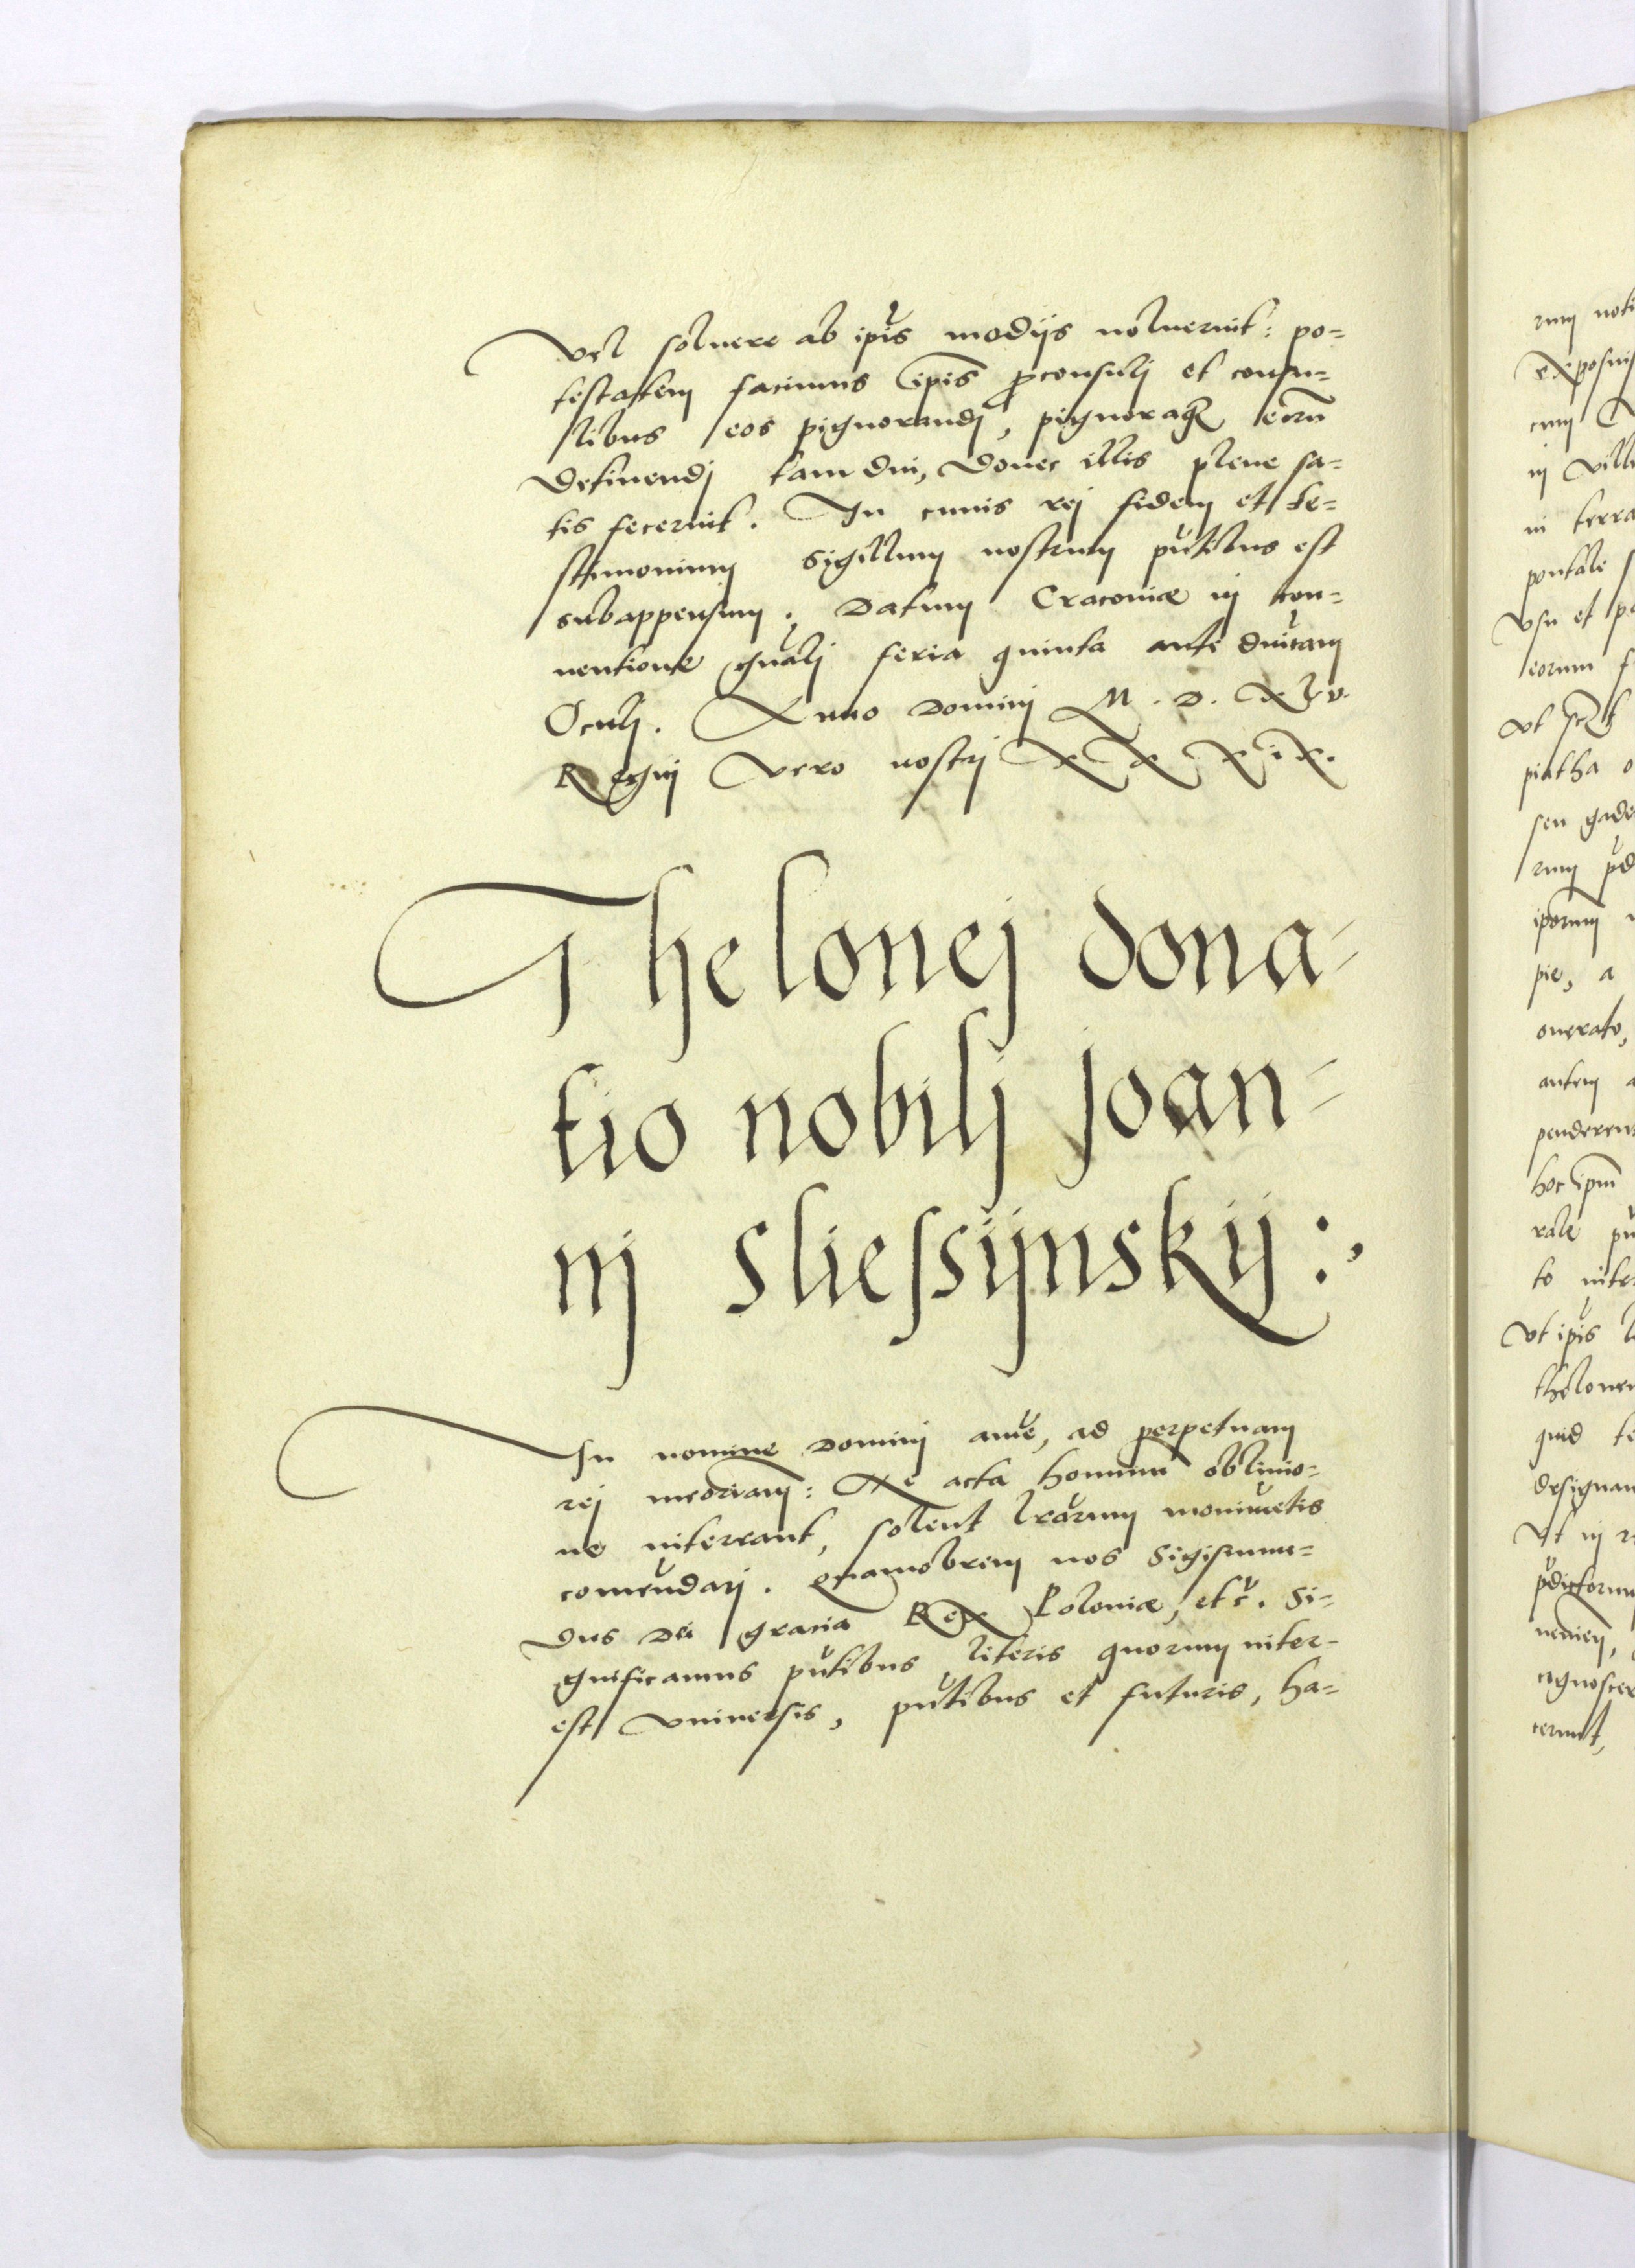 vel soluere ab ip̃is modijs noluerint: po=
testatem facimus ip̃is proconsulj et consu=
libus eos pignorandj, pignoraq̃ eorũ
detinendj tamdiu, donec illis plene sa=
tis fecerint. In cuius rej fidem et te=
stimonium sigillum nostrum pñtibus est
subappensum. Datum Cracoviæ in con=
uentione gñalj feria quinta ante dñicam
Oculj. Anno Dominj M. D. XLV.
Regnj vero nostrj XXXIX.
Thelonej dona-
tio nobilj Joan-
nj sliessijnskij:,
In nomine Dominj amẽ, ad perpetuam
rej mẽoriam: Ne acta hominũ obliuio=
ne intereant, solent lr̃arum monimẽtis
comẽdarj. Quamobrem nos Sigismun=
dus Dei gracia Rex Poloniæ, etc̃. Si=
gnificamus pñtibus literis quorum inter-
est vniuersis, pñtibus et futuris, ha=
rum noti
exposuis
cum
in villa
in terra
pontale
vsu et pe
eorum f
vt
piatha o
seu gade
rum p̃d
ip̃orum
pie, a
onerato,
autem a
penderent
hoc ip̃m
rale pñ
to inter
vt ip̃is l
thelonei
quid te
designan
vt in r
p̃dictorum
cognoscer
cerunt,